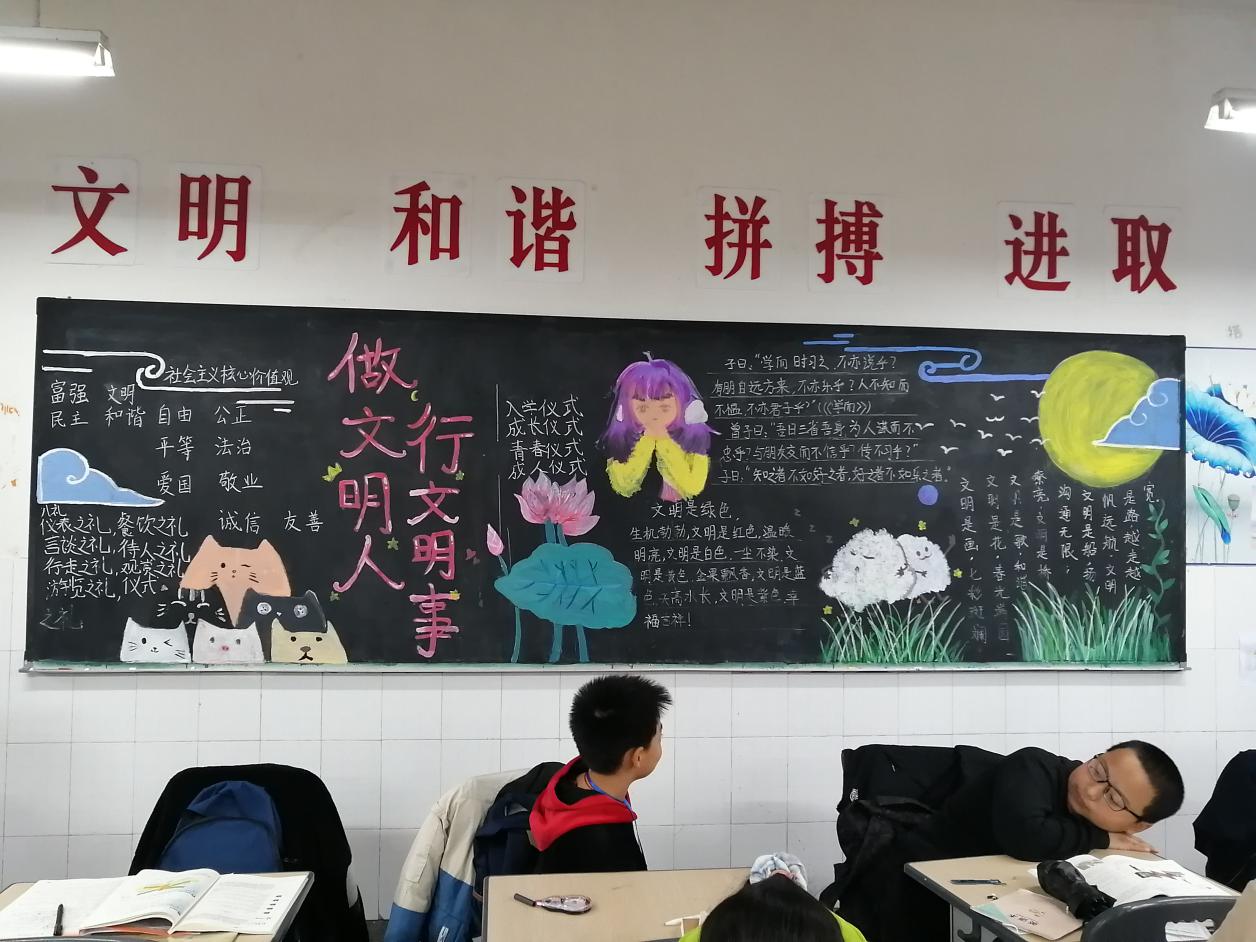 文明 和谐 拼搏 进取
社会主义核心价值观
富强 文明
民主 和谐 自由 公正
平等 法治
爱国 敬业
诚信 友善
八礼
仪表之礼,餐饮之礼
言谈之礼,待人之礼
行走之礼,观赏之礼
游览之礼,仪式
之礼
做文明人
行文明事
入学仪式
成长仪式
青春仪式
成人仪式
子曰:“学而时习之,不亦说乎?
有朋自远方来,不亦乐乎?人不知而
不愠,不亦君子乎?”(《学而》)
曾子曰:“吾日三省吾身为人谋而不
忠乎?与朋友交而不信乎?传不习乎?”
子曰:“知之者不如好之者,好之者不如乐之者。”
文明是绿色,
生机勃勃,文明是红色,温暖
明亮,文明是白色,一尘不染,文
明是黄色,金果飘香,文明是蓝
色,天高水长,文明是紫色,幸
福吉祥!
宽。
是路越走越
帆远航,文明
文明是船,扬
沟通无限;
文明是桥
文明是歌,和谐
文明是花,春光满园
文明是画,七彩斑斓